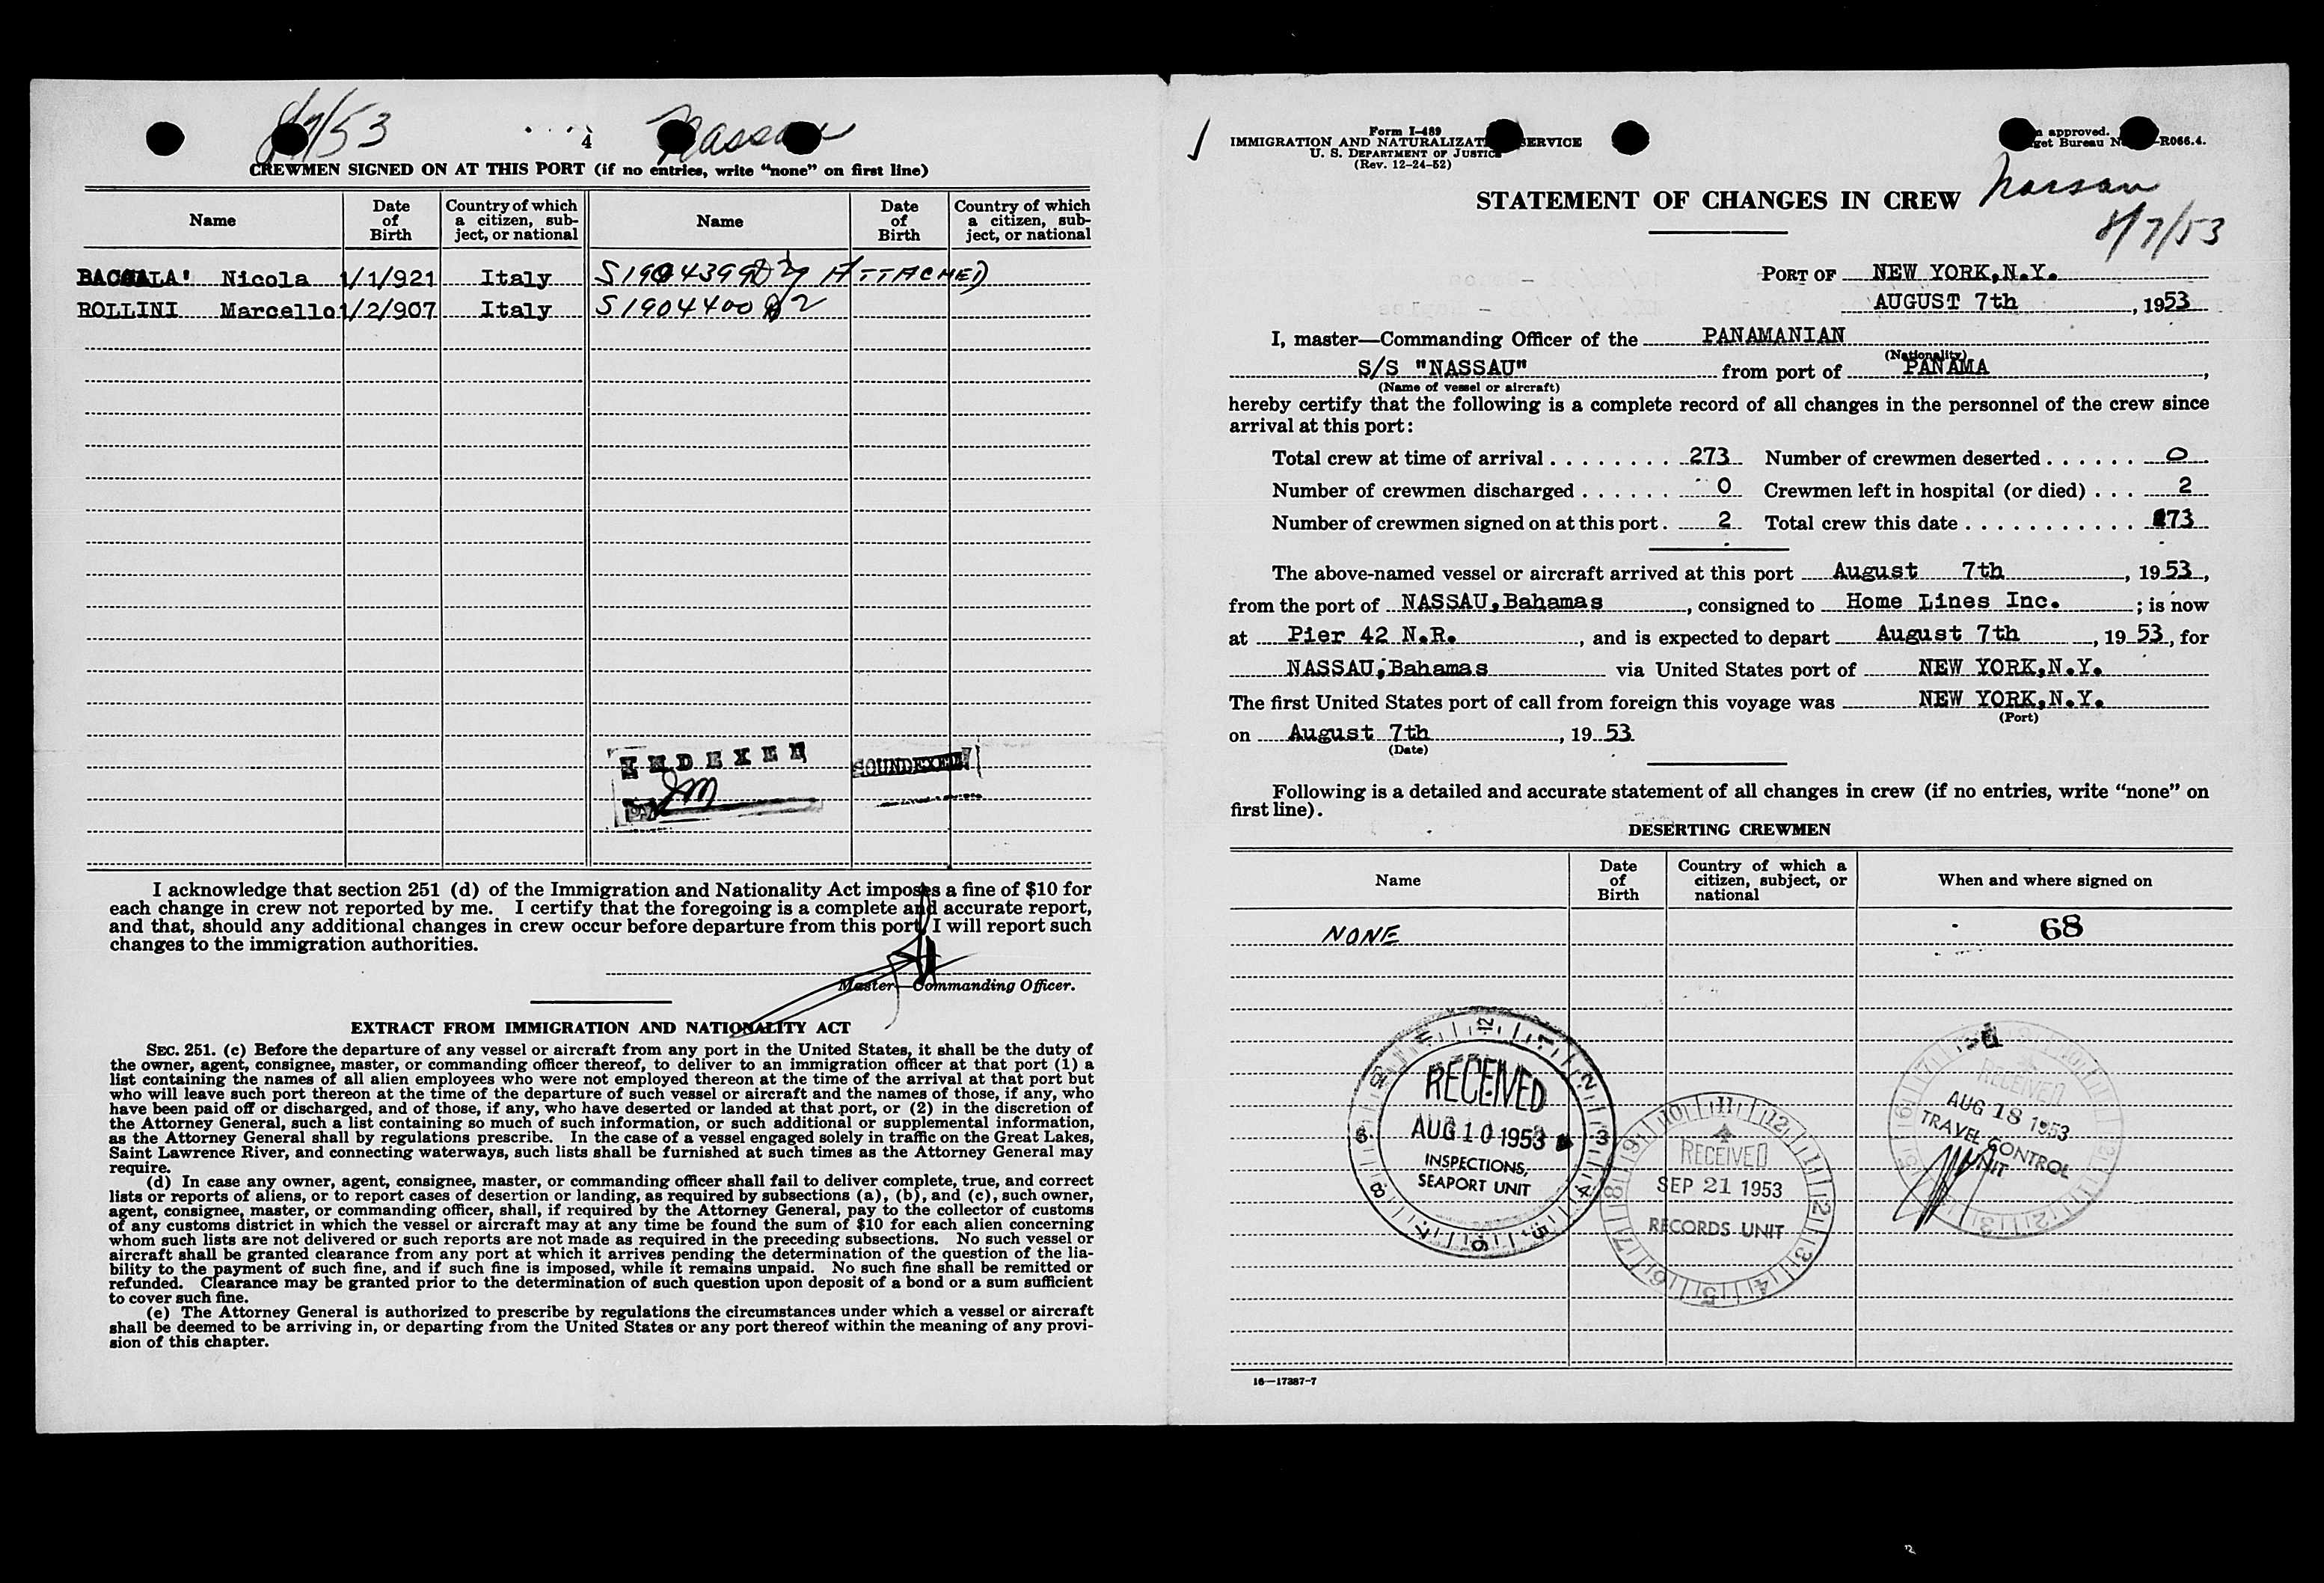 8/7/53
4
Nassau
CREWMEN SIGNED ON AT THIS PORT (if no entries, write “none” on first line)
Name Date of Birth Country of which a citizen, subject, or national Name Date of Birth Country of which a citizen, subject, or national
BACCALA' Nicola 1/1/921 Italy S1904399 ATTACHED
ROLLINI Marcello 1/2/907 Italy S1904400
INDEXED
SOUNDEXED
I acknowledge that section 251 (d) of the Immigration and Nationality Act imposes a fine of $10 for
each change in crew not reported by me. I certify that the foregoing is a complete and accurate report,
and that, should any additional changes in crew occur before departure from this port, I will report such
changes to the immigration authorities.
Master—Commanding Officer.
EXTRACT FROM IMMIGRATION AND NATIONALITY ACT
SEC. 251. (c) Before the departure of any vessel or aircraft from any port in the United States, it shall be the duty of
the owner, agent, consignee, master, or commanding officer thereof, to deliver to an immigration officer at that port (1) a
list containing the names of all alien employees who were not employed thereon at the time of the arrival at that port but
who will leave such port thereon at the time of the departure of such vessel or aircraft and the names of those, if any, who
have been paid off or discharged, and of those, if any, who have deserted or landed at that port, or (2) in the discretion of
the Attorney General, such a list containing so much of such information, or such additional or supplemental information,
as the Attorney General shall by regulations prescribe. In the case of a vessel engaged solely in traffic on the Great Lakes,
Saint Lawrence River, and connecting waterways, such lists shall be furnished at such times as the Attorney General may
require.
(d) In case any owner, agent, consignee, master, or commanding officer shall fail to deliver complete, true, and correct
lists or reports of aliens, or to report cases of desertion or landing, as required by subsections (a), (b), and (c), such owner,
agent, consignee, master, or commanding officer, shall, if required by the Attorney General, pay to the collector of customs
of any customs district in which the vessel or aircraft may at any time be found the sum of $10 for each alien concerning
whom such lists are not delivered or such reports are not made as required in the preceding subsections. No such vessel or
aircraft shall be granted clearance from any port at which it arrives pending the determination of the question of the lia-
bility to the payment of such fine, and if such fine is imposed, while it remains unpaid. No such fine shall be remitted or
refunded. Clearance may be granted prior to the determination of such question upon deposit of a bond or a sum sufficient
to cover such fine.
(e) The Attorney General is authorized to prescribe by regulations the circumstances under which a vessel or aircraft
shall be deemed to be arriving in, or departing from the United States or any port thereof within the meaning of any provi-
sion of this chapter.
Form I-489
IMMIGRATION AND NATURALIZAT SERVICE
U. S. DEPARTMENT OF JUSTICE
(Rev. 12-24-52)
approved.
get Bureau N -R066.4.
STATEMENT OF CHANGES IN CREW
Nassau
8/7/53
PORT OF NEW YORK,N.Y.
AUGUST 7th, 1953
I, master—Commanding Officer of the PANAMANIAN
(Nationality)
S/S "NASSAU" from port of PANAMA,
(Name of vessel or aircraft)
hereby certify that the following is a complete record of all changes in the personnel of the crew since
arrival at this port:
Total crew at time of arrival . . . . . . . . 273 Number of crewmen deserted . . . . . . 0
Number of crewmen discharged . . . . . . 0 Crewmen left in hospital (or died) . . . 2
Number of crewmen signed on at this port . 2 Total crew this date . . . . . . . . . . . 273
The above-named vessel or aircraft arrived at this port August 7th, 1953,
from the port of NASSAU,Bahamas, consigned to Home Lines Inc. ; is now
at Pier 42 N.R., and is expected to depart August 7th, 1953, for
NASSAU,Bahamas via United States port of NEW YORK,N.Y.
The first United States port of call from foreign this voyage was NEW YORK,N.Y.
(Port)
on August 7th, 1953
(Date)
Following is a detailed and accurate statement of all changes in crew (if no entries, write “none” on
first line).
DESERTING CREWMEN
Name Date of Birth Country of which a citizen, subject, or national When and where signed on
NONE 68
RECEIVED
AUG 10 1953
INSPECTIONS,
SEAPORT UNIT
RECEIVED
SEP 21 1953
RECORDS UNIT
RECEIVED
AUG 18 1953
TRAVEL CONTROL
UNIT
16—17387-7